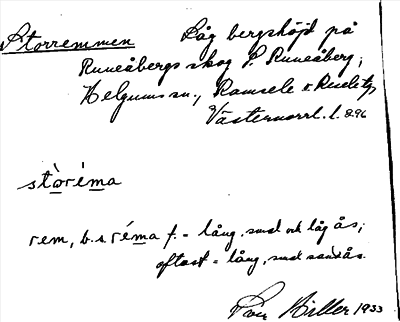 Storremmen Låg bergshöjd på
Runeåbergs skog S. Runeåberg,
Helgums sn., Ramsele o Resele tg
Västernorrl. l. 896
stòréma
rem, b. s. réma f. = lång, smal och låg ås;
oftast = lång, smal sandås.
Hiller 1933